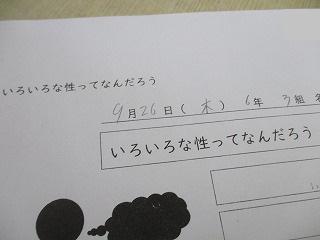 いろいろな性ってなんだろう
9月26日(木) 6年 3組 名
いろいろな性ってなんだろう